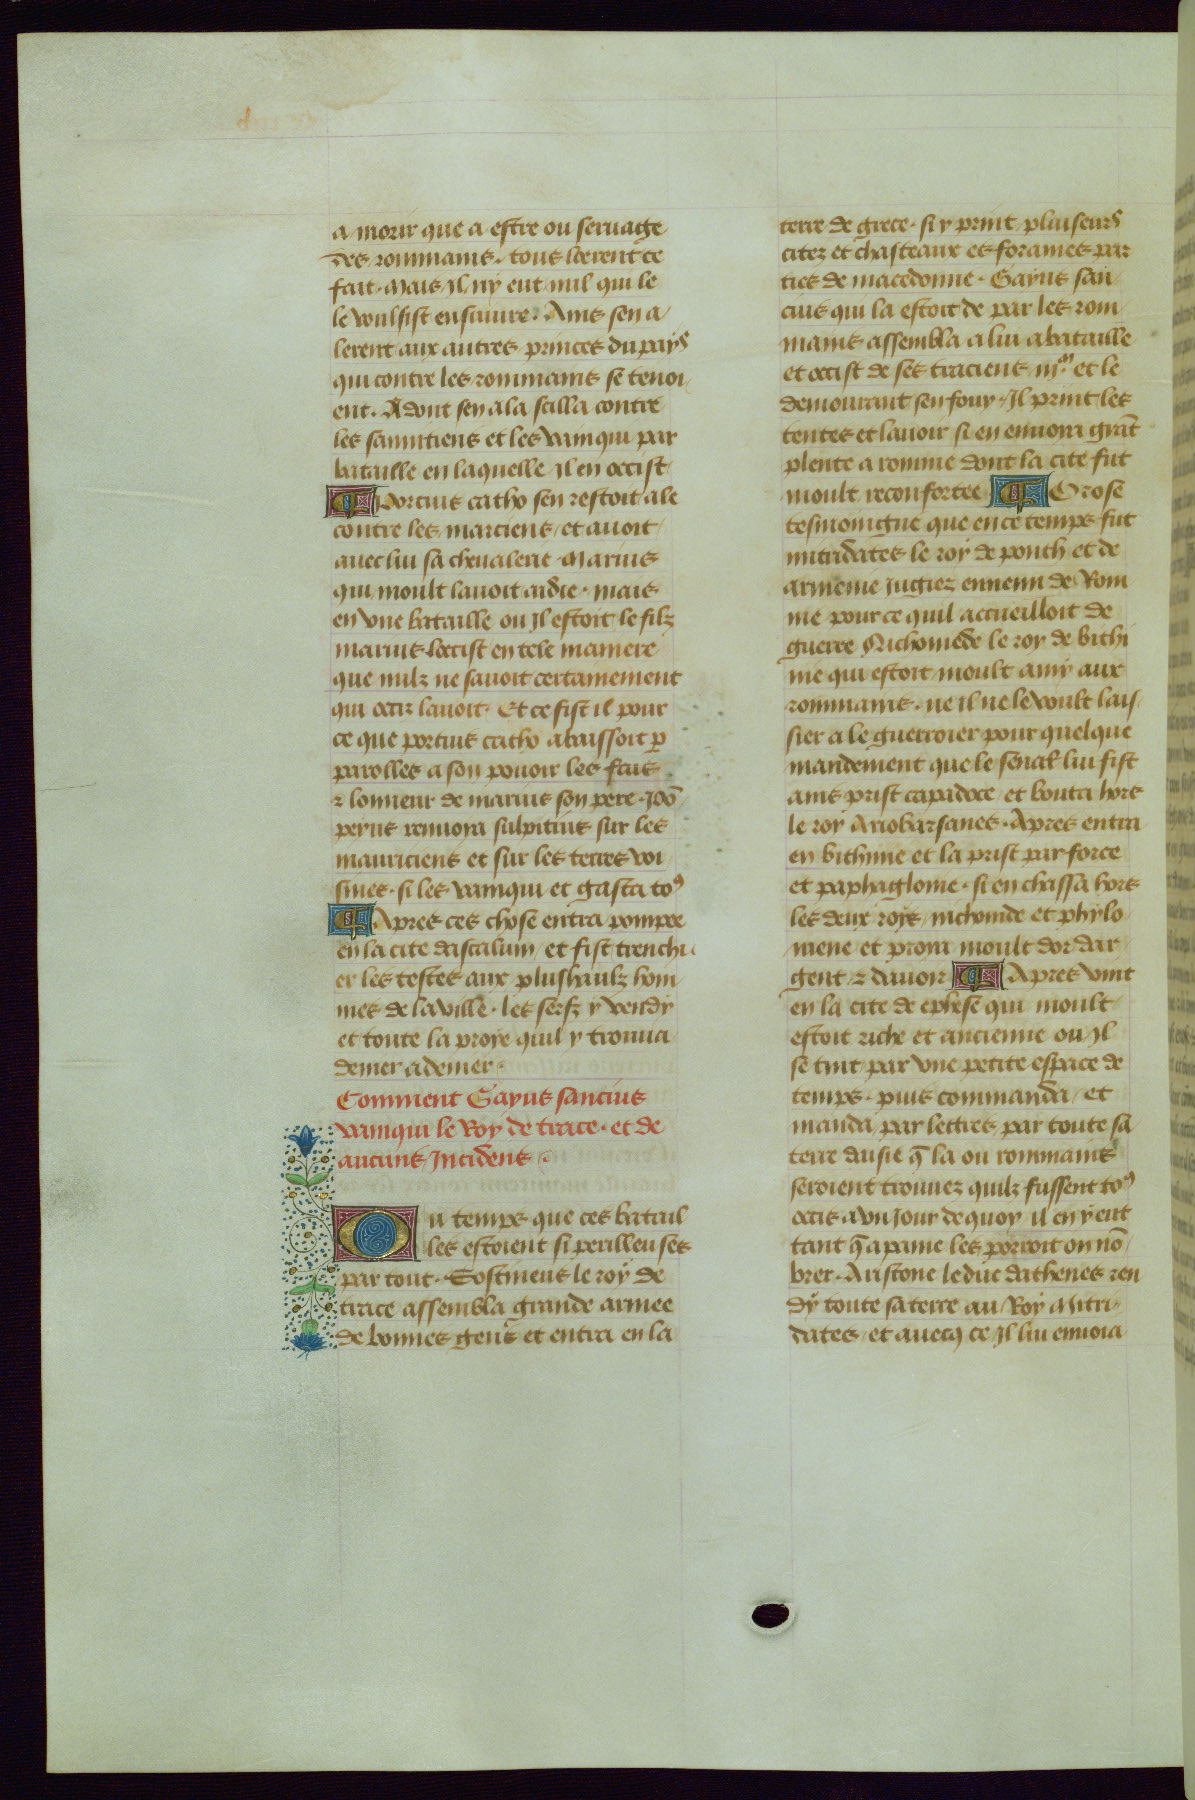 a morir que a estre ou seruage
des rommains. tous loerent ce
fait. Mais Il ny eut nul qui le
le voulsist ensuiure. Ains sen a
lerent aux autres princes du pays
qui contre les rommains se tenoi
ent. Adont sen ala scilla contre
les samitiens et les vainqui par
bataille en laquelle il en occist
Porcius catho sen restoit ale
contre les marciens et auoit
auec lui sa cheualerie Marius
qui moult lauoit aidie. mais
en vne bataille ou Il estoit le filz
marius loccist en tele maniere
que nulz ne sauoit certainement
qui occiz lauoit. Et ce fist il pour
ce que porcius catho abaissoit ꝑ
parolles a son pouoir les fais
⁊ lonneur de marius son pere.
peyus renuoya sulpitius sur les
mauriciens et sur les terres voi
sines. si les vainqui et gasta toꝰ
Apres ces chose entra pompee
en la cite dascalum et fist trenchi
er les testes aux plushaulz hom
mes de la ville. les serfz y vendy
et toute la proye quil y trouua
denier a denier.
Comment Gayus sancius
vainqui le Roy de trace. et de
aucuns Incidens
Ou temps que ces batail
les estoient si perilleuses
par tout. Costineus le roy de
trace assembla grande armee
de bonnes gens et entra en la
terre de grece. si y print pluiseurs
citez et chasteaux es foraines par
ties de macedonne. Gayus san
cius qui la estoit de par les rom
mains assembla a lui a bataille
et occist de ses traciens iiiᵐ et le
demourant sen fouy. Il print les
tentes et lauoir si en enuoia grāt
plente a romme dont la cite fut
moult reconfortee Orose
tesmoingne que en ce temps fut
mitridates le roy de ponth et de
armenie Jugiez ennemi de Rom
me pour ce quil accueilloit de
guerre Nichomede le roy de bithi
nie qui estoit moult amy aux
rommains. ne il ne le voult lais
sier a le guerroier pour quelque
mandement que le senat lui fist
ains prist capadoce et bouta hors
le roy Ariobarsanes. Apres entra
en bithinie et la prist par force
et paphaglonie. si en chassa hors
les deux roys nichomde et phylo
mene et prom moult dor dar
gent ⁊ dauoir Apres vint
en la cite de ephese qui moult
estoit riche et ancienne ou Il
se tint par vne petite espace de
temps. puis commanda et
manda par lectres par toute sa
terre dasie q̄ la ou rommains
seroient trouuez quilz fussent toꝰ
occis a vn Jour de quoy il en y eut
tant q̄ a paine les porroit on nō
brer. Aristone le duc dathenes ren
dy toute sa terre au Roy Mitri
dates et auecq ce Il lui enuoia